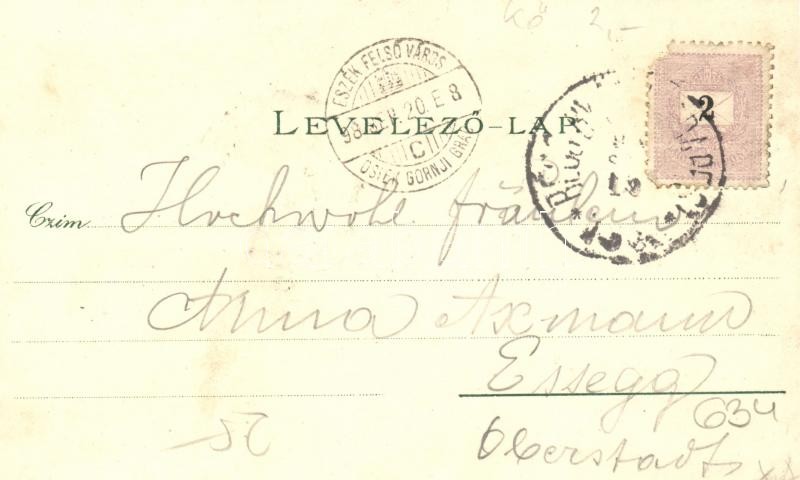 Kő 2,-
2
ESZÉK FELSŐ VÁROS
98 20. E 8
C
OSIEK GORNJI GRAD
LEVELEZŐ-LAP.
Czim
Hochwohl fräulein
Anna Axmann
Essegg
634
Oberstadt
52